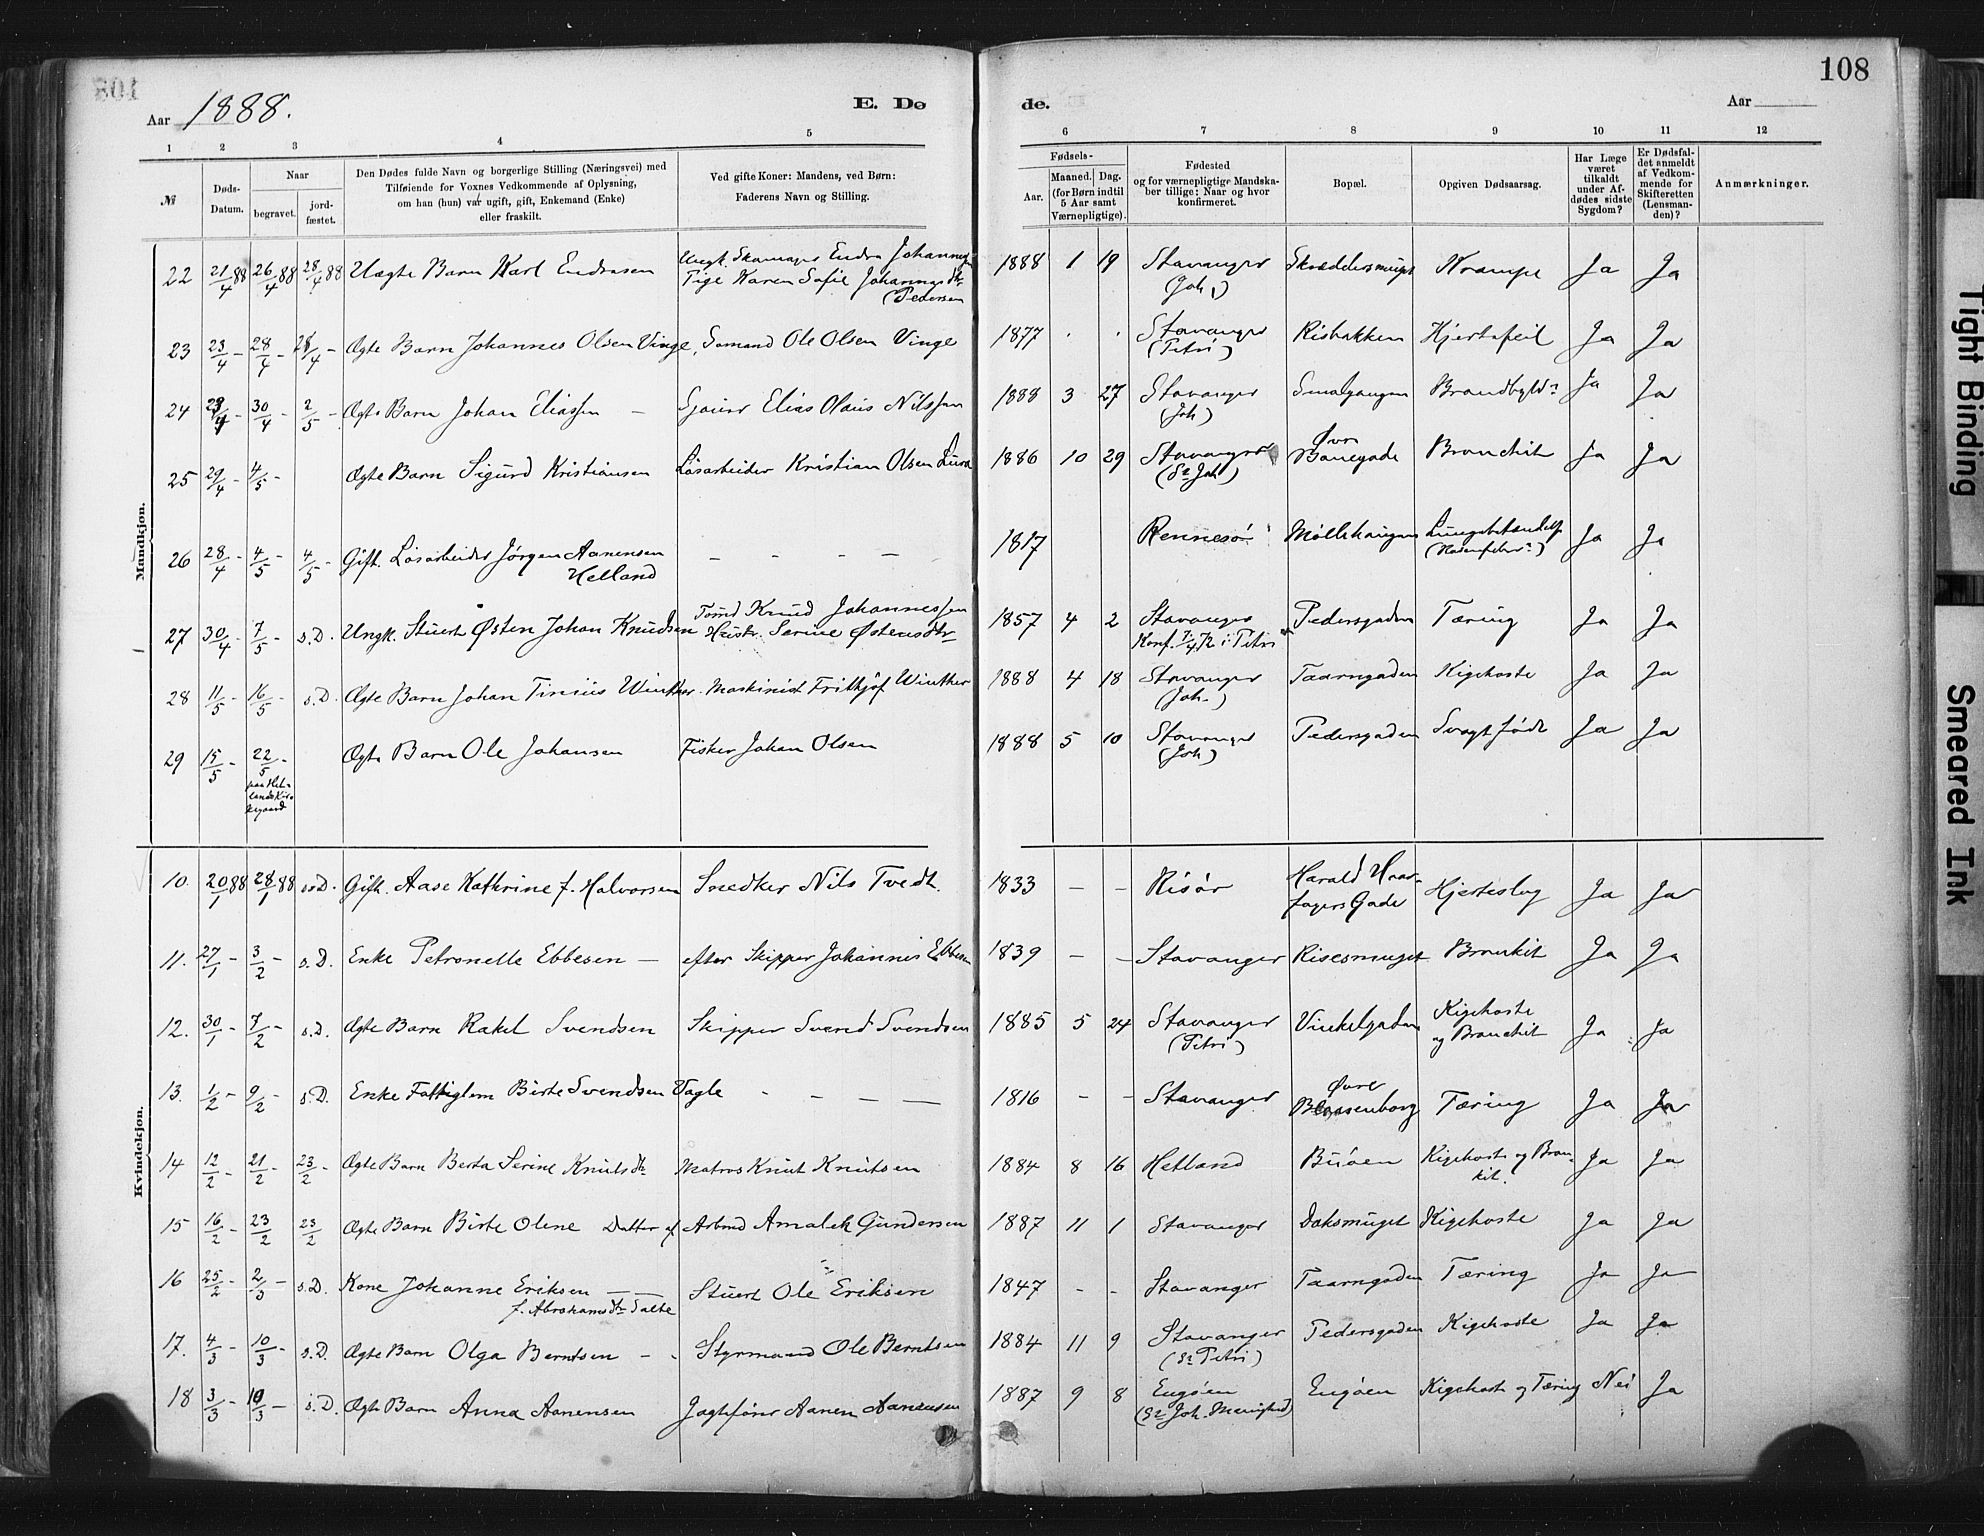 108
Aar 1888.
E. Dø
de.
Aar
1 2 3 4 5 6 7 8 9 10 11 12
№
Døds-Datum.
Naar
begravet.
jord-fæstet.
Den Dødes fulde Navn og borgerlige Stilling (Næringsvei) med
Tilføiende for Voxnes Vedkommende af Oplysning,
om han (hun) var ugift, gift, Enkemand (Enke)
eller fraskilt.
Ved gifte Koner: Mandens, ved Børn:
Faderens Navn og Stilling.
Fødsels-
Aar.
Maaned. Dag.
(for Børn indtil
5 Aar samt
Værnepligtige).
Fødested
og for værnepligtige Mandska-
ber tillige: Naar og hvor
konfirmeret.
Bopæl.
Opgiven Dødsaarsag.
Har Læge
været
tilkaldt
under Af-
dødes sidste
Sygdom?
Er Dødsfal-
det anmeldt
af Vedkom-
mende for
Skifteretten
(Lensman-
den)?
Anmærkninger.
Mandkjøn.
22 21/4 88 26/4 88 28/4 88 Uægte Barn Karl Endresen Ungk. Skomager Endre Johannesen 1888 1 19 Stavanger Krampe Ja Ja
Pige Karen Sofie Johannesdtr. (Joh.)
(Pedersen
23 23/4 - 28/4 - 28/4 - Ægte Barn Johannes Olsen Vinge, Sømand Ole Olsen Vinge 1877 Stavanger Risbakken Hjertefeil Ja Ja
(Petri)
24 30/4 - 2/5 - Ægte Barn Johan Eliassen — Sjouer Elias Olaus Nilssen 1888 3 27 Stavanger Smalgangen Ja Ja
(Joh)
25 29/4 - 4/5 - Ægte Barn Sigurd Kristiansen Løsarbeider Kristian Olsen Lura 1886 10 29 Stavanger Øvre Banegade Bronchit Ja Ja
(St Joh)
26 28/4 - 4/5 - 4/5 - Gift. Løsarbeider Jørgen Aanensen — — — — 1817 Rennesø Møllehaugen Lungebetændelse Ja Ja
Helland
27 30/4 - 7/5 - s.D. Ungk. Stuert Østen Johan Knudsen Tømd Knud Johannessen 1857 4 2 Stavanger Pedersgaden Tæring Ja Ja
Hustr. Serine Østensdtr
Konf. 7/4 72 i Petri
28 11/5 - 16/5 - s.D. Ægte Barn Johan Tinius Winther. Maskinist Frithjof Winther 1888 4 18 Stavanger Taarngaden Kighoste Ja Ja
(Joh.)
29 15/5 - 22/5 - Ægte Barn Ole Johansen Fisker Johan Olsen 1888 5 10 Stavanger Pedersgaden Svagt født Ja Ja
(Joh)
paa Het-
lands Kir-
kegaard
Kvindekjøn.
10. 20/1 88 28/1 88 s.D. Gift. Aase Kathrine f. Halvorsen Snedker Nils Tvedt. 1833 — — Risør Harald Haar- Hjerteslag Ja Ja
fagers Gade
11. 27/1 - 3/2 - s.D. Enke Petronelle Ebbesen — efter Skipper Johannis Ebbesen 1839 — — Stavanger Risesmuget Bronkit Ja Ja
12. 30/1 - 7/2 - s.D. Ægte Barn Rakel Svendsen Skipper Svend Svendsen 1885 5 24 Stavanger Vinkelgaden Kighoste Ja Ja
(Petri) og Bronchit
13. 1/2 - 9/2 - s.D. Enke Fattiglem Birte Svendsen Vagle - — — — 1816 — — Stavanger Øvre Blaasenborg Tæring Ja Ja
14 12/2 - 21/2 - 23/2 - Ægte Barn Berta Serine Knutsdtr Matros Knut Knutsen 1884 8 16 Hetland Buøen Kighoste og Bron- Ja Ja
kit.
15 16/2 - 23/2 23/2 Ægte Barn Birte Oline Datter af Arbmd Amalek Gundersen 1887 11 1 Stavanger Daksmuget Kighoste Ja Ja
16 25/2 - 2/3 — s.D. Kone Johanne Eriksen — — Stuert Ole Eriksen 1847 - - Stavanger Taarngaden Tæring Ja Ja
f. Abrahamsdtr Salte
17. 4/3 - 10/3 - s.D. Ægte Barn Olga Berntsen — - Styrmand Ole Berntsen 1884 11 9 Stavanger Pedersgaden Kighoste Ja Ja
(St Petri)
18 3/3 - 10/3 — s.D. Ægte Barn Anna Aanensen Jagtefører Aanen Aanensen 1887 9 8 Engøen Engøen Kighoste og Tæring Nei Ja
(St Joh. Menighed)
Tight Binding
Smeared Ink